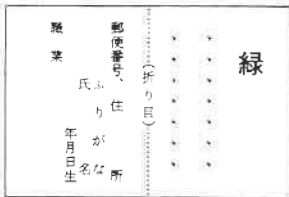 緑
(折り目)
郵便番号、住所
ふりがな
氏名
年月日生
職業